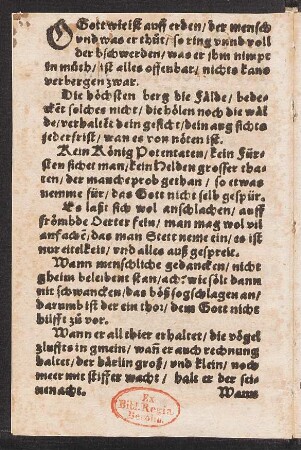 O Gott wie ist auff erden/ der mensch
vnd was er thůt/ so ring vnnd voll
der bschwerden/ was er jhm nimpt
in můth/ ist alles offenbar/ nichts kans
verbergen zwar.
Die höchsten berg die Fälde/ bede-
ckēt solches nicht/ die hölen noch die wäl
de/ verhalēt dein gesicht/ dein aug sichts
jederfrist/ wan es von nöten ist.
Kein König Potentaten/ kein Für-
sten sichet man/ kein Helden grosser tha-
ten/ der manche prob gethan/ so etwas
nemme für/ das Gott nicht selb gespür.
Es laßt sich wol anschlachen/ auff
frömbde Oerter fein/ man mag wol vil
anfachē/ das man Stett neme ein/ es ist
nur eitelkeit/ vnd alles auß gespreit.
Wann menschliche gedancken/ nicht
gheim beleibent stan/ ach wie sölt dann
mit schwancken/ das böß so gschlagen an/
darumb ist der ein thor/ dem Gott nicht
hülfft zů vor.
Wann er all thier erhaltet/ die vögel
zlufft in gmein/ wañ er auch rechnung
haltet/ der härlin groß/ vnd klein/ noch
meer mit stiffer wacht/ halt er der sei-
nen acht.
Wann
Ex
Bibl. Regia
Berolin.